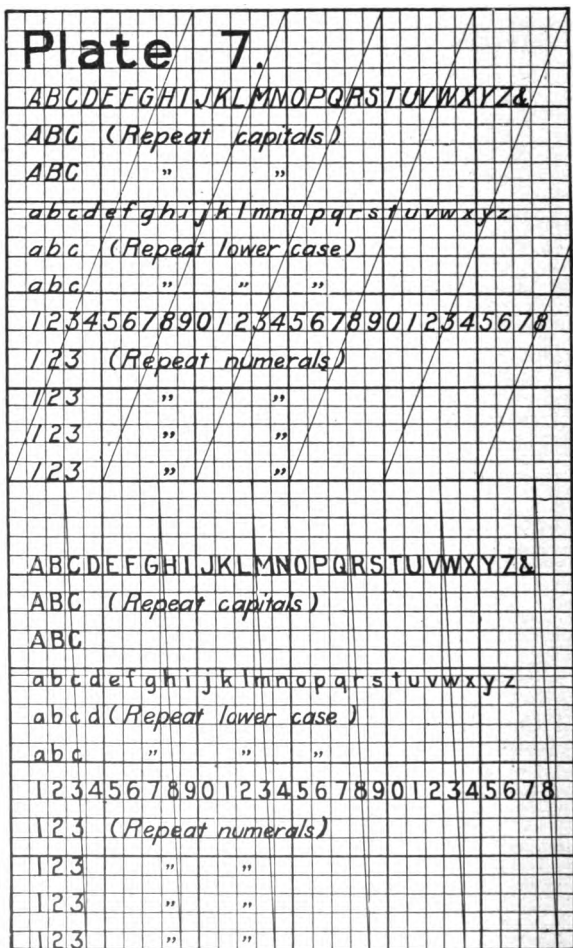 Plate 7.
ABCDEFGHIJKLMNOPQRSTUVWXYZ&
ABC (Repeat capitals)
ABC " "
abcdefghijklmnopqrstuvwxyz
abc (Repeat lower case)
abc " " "
1234567890123456789012345678
123 (Repeat numerals)
123 " "
123 " "
123 " "
ABCDEFGHIJKLMNOPQRSTUVWXYZ&
ABC (Repeat capitals)
ABC
abcdefghijklmnopqrstuvwxyz
abcd (Repeat lower case)
abc " " "
1234567890123456789012345678
123 (Repeat numerals)
123 " "
123 " "
123 " "